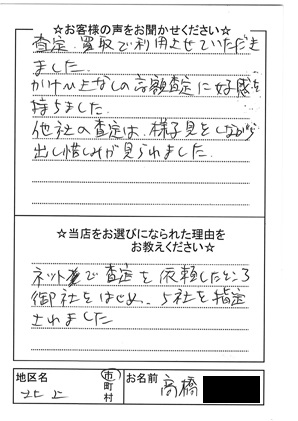 ☆お客様の声をお聞かせください☆
査定、買取で利用させていただき
ました。
かけ値なしの高額査定に好感を
持ちました。
他社の査定は、様子見をしながら
出し惜しみが見られました。
☆当店をお選びになられた理由を
お教えください☆
ネットで査定を依頼したところ
御社をはじめ、5社を指定
されました
地区名 北上 市町村 お名前 高橋